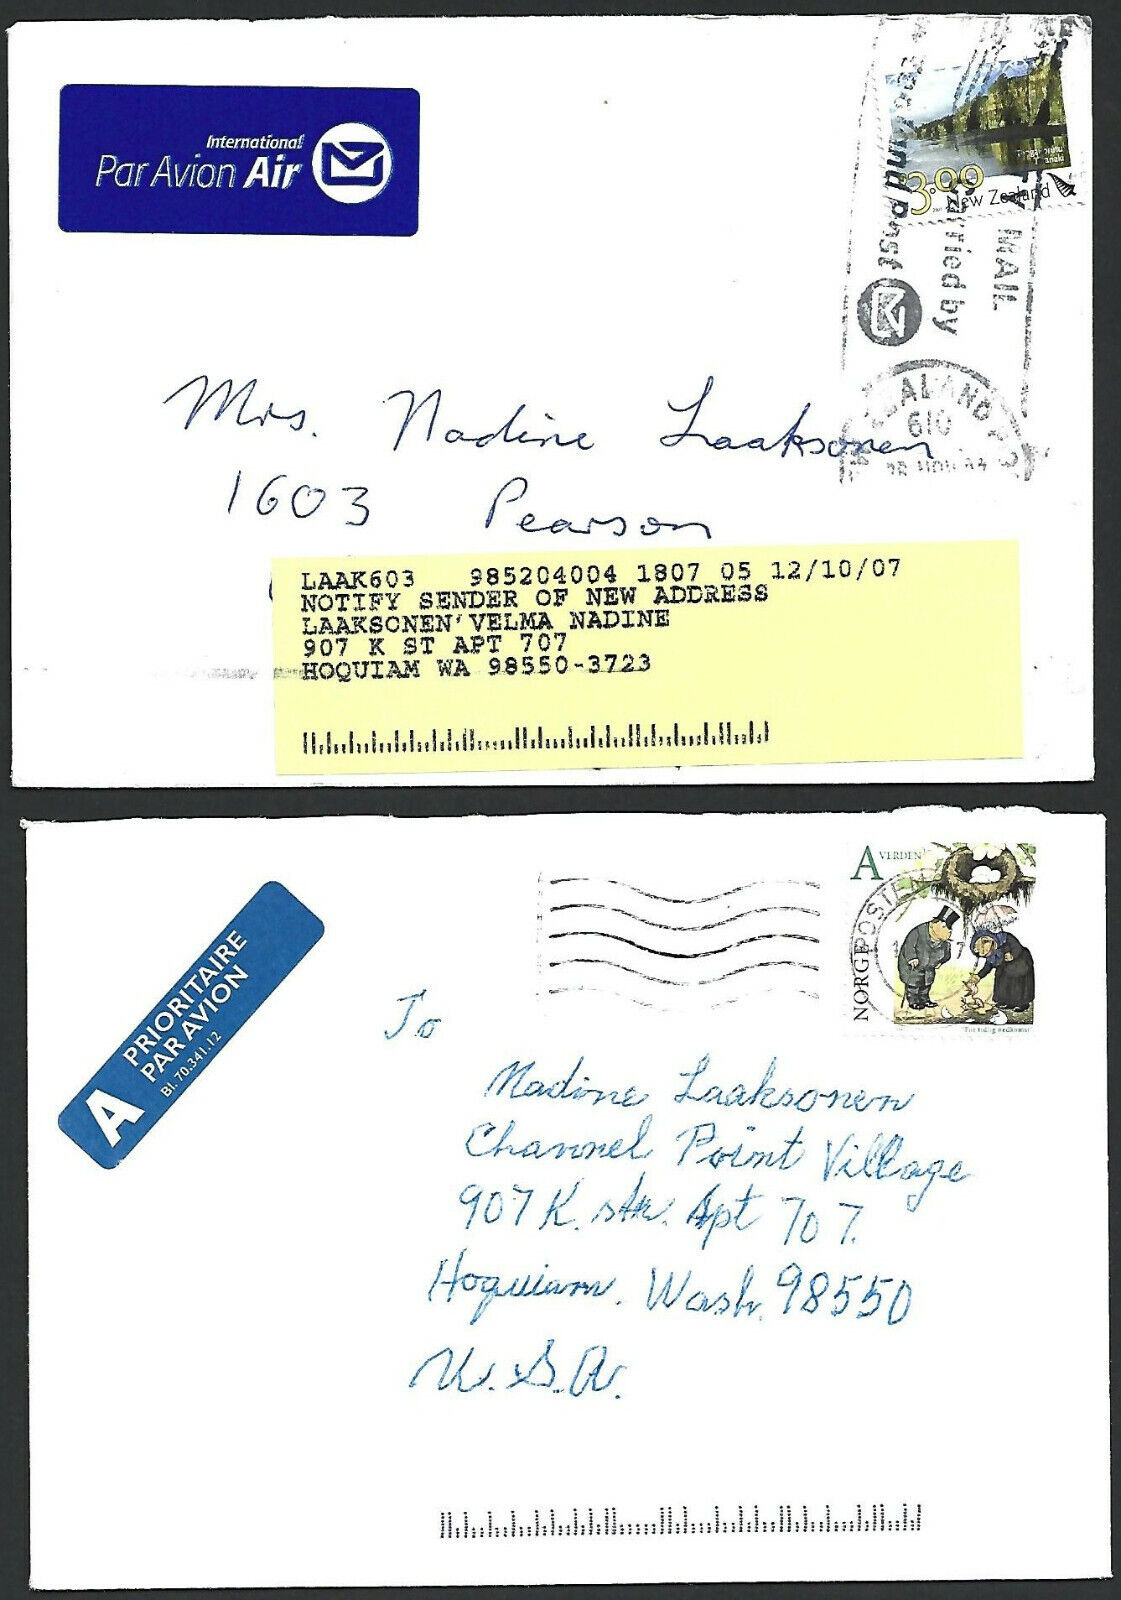 International
Par Avion Air
3.00
New Zealand
MAIL
Carried by
Post
610
Mrs. Nadine Laaksonen
1603 Pearson
LAAK603 985204004 1807 05 12/10/07
NOTIFY SENDER OF NEW ADDRESS
LAAKSONEN'VELMA NADINE
907 K ST APT 707
HOQUIAM WA 98550-3723
A VERDEN
NORGE
POSTEN
A PRIORITAIRE
PAR AVION
Bl. 70.341.12
To
Nadine Laaksonen
Channel Point Village
907 K. str. Apt 707.
Hoquiam. Wash. 98550
U.S.A.